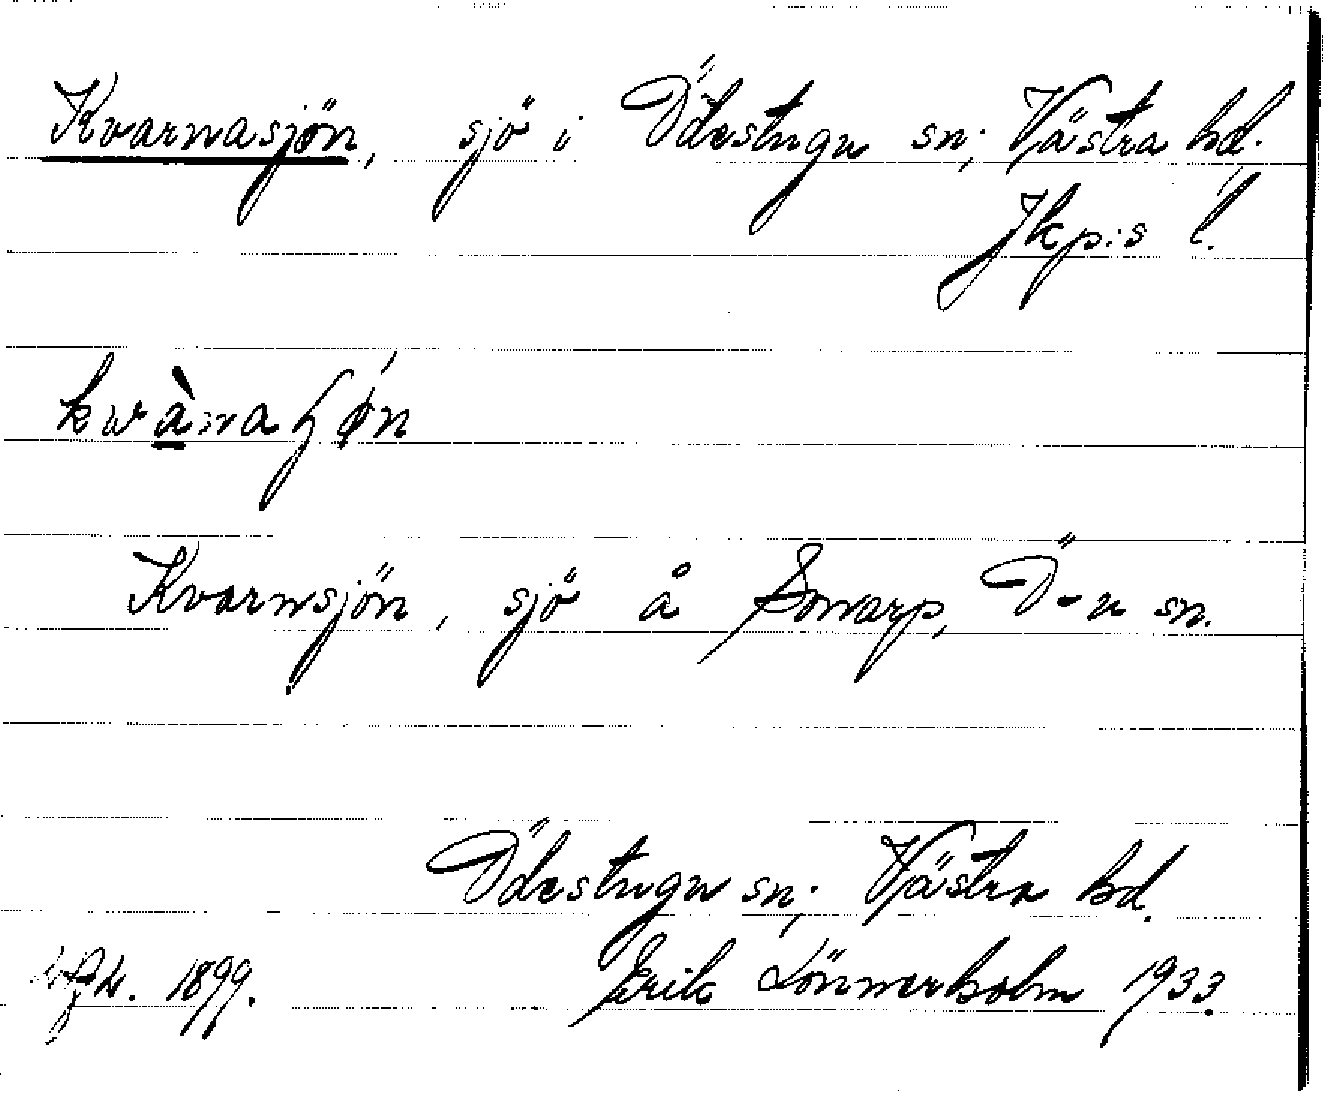 Kvarnasjön, sjö i Ödestugu sn; Västra hd.
Jkp:s l.
Kvarnsjön, sjö å Somarp, Ö-u sn.
Ödestugu sn; Västra hd.
1899. Erik Lönnerholm 1933.